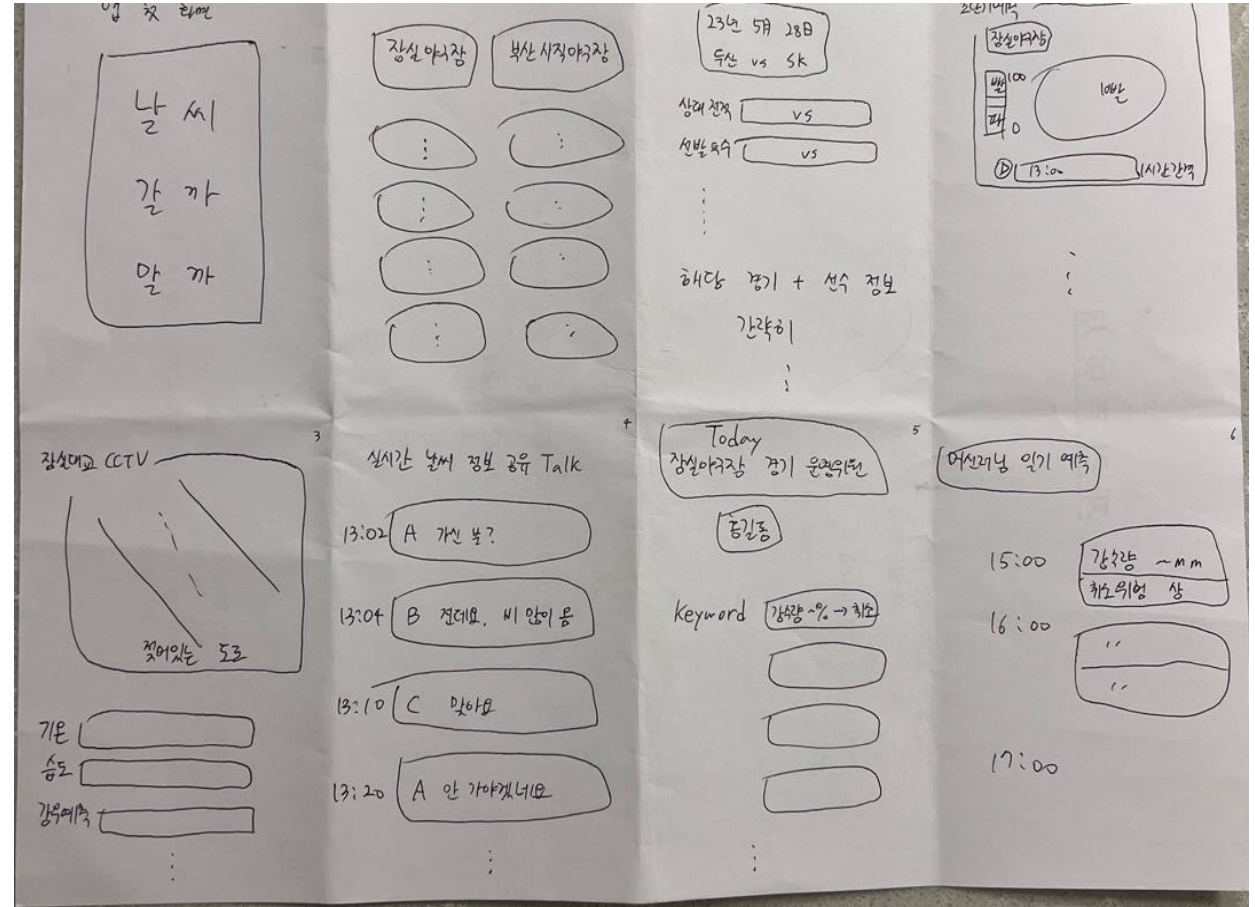 앱 첫 화면
날씨
갈까
말까
잠실야구장
부산사직야구장
23년 5月 28日
두산 vs SK
상대전적 vs
선발투수 vs
해당 경기 + 선수 정보
간략히
초단기예측
잠실야구장
빨 100
파 0
빨
13:00
1시간간격
3
잠실대교 CCTV
젖어있는 도로
기온
습도
강우예측
4
실시간 날씨 정보 공유 Talk
13:02 A 가신 분?
13:04 B 전데요. 비 많이 옴
13:10 C 맞아요
13:20 A 안 가야겠네요
5
Today
잠실야구장 경기 운영위원
홍길동
Keyword 강수량 ~% → 취소
6
머신러닝 일기 예측
15:00 강수량 ~mm
취소위험 상
16:00 "
"
17:00